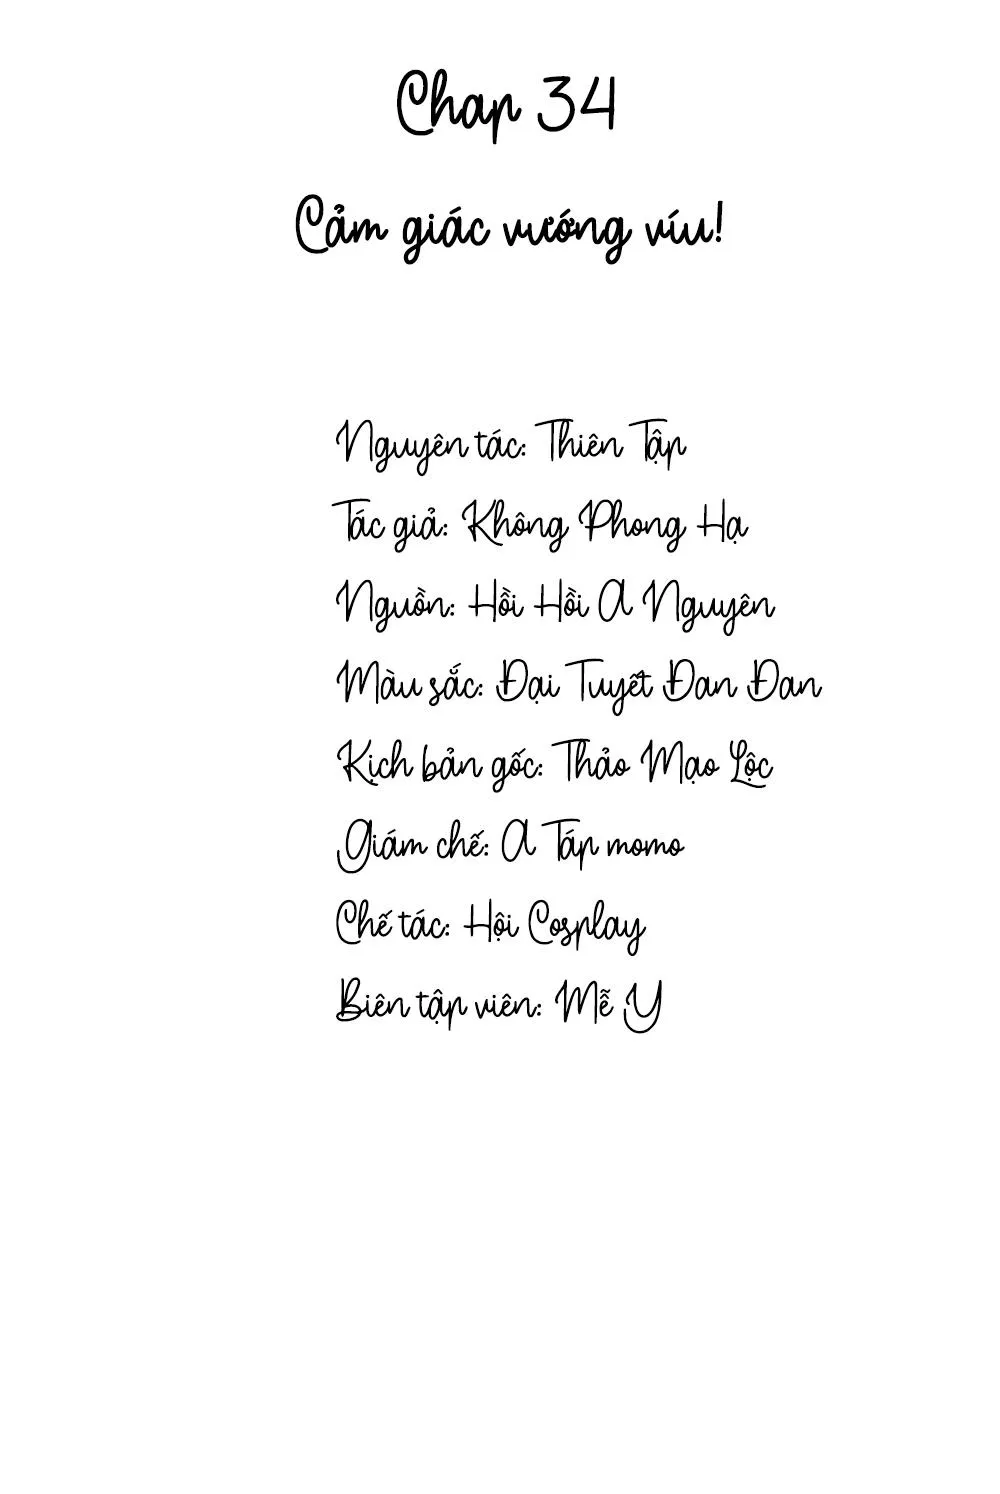 Chap 34
Cảm giác vướng víu!
Nguyên tác: Thiên Tập
Tác giả: Không Phong Hạ
Nguồn: Hồi Hồi A Nguyên
Màu sắc: Đại Tuyết Đan Đan
Kịch bản gốc: Thảo Mạo Lộc
Giám chế: A Táp momo
Chế tác: Hội Cosplay
Biên tập viên: Mễ Y